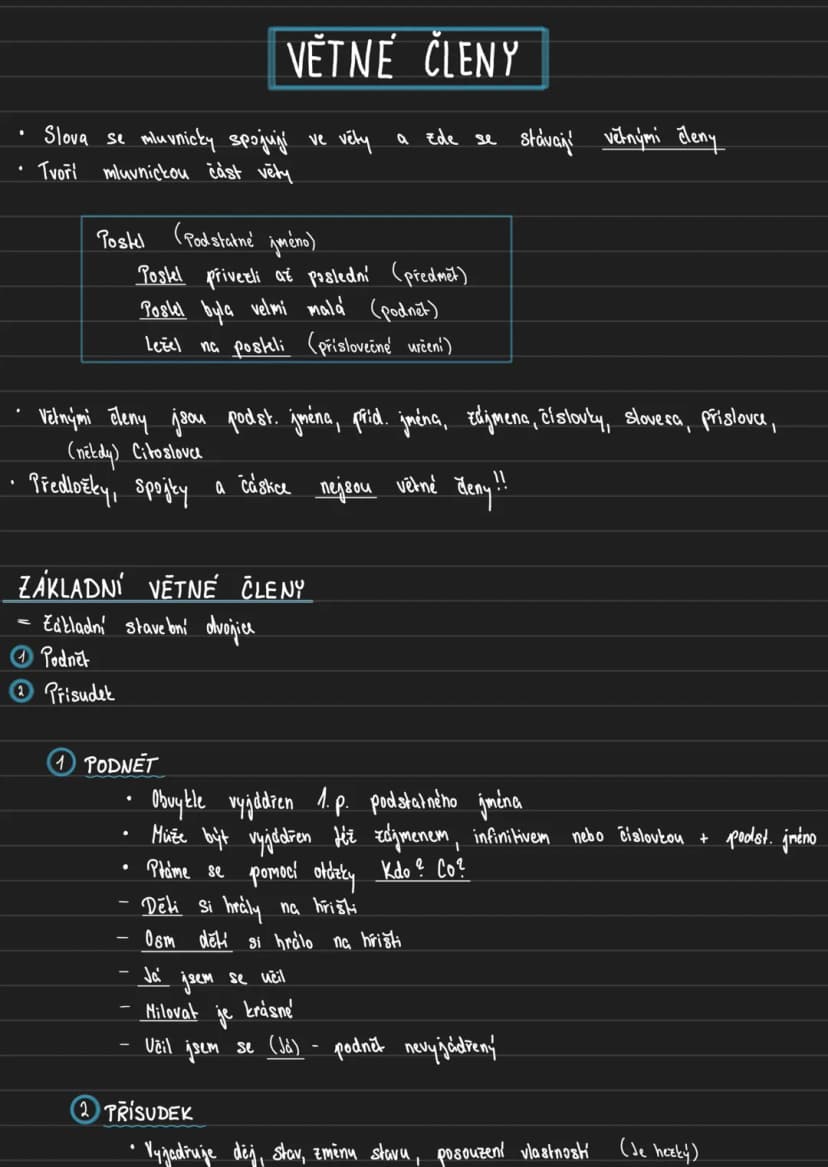 VĚTNÉ ČLENY
· Slova se mluvnicky spojují ve věty a zde se stávají větnými členy
· Tvoří mluvnickou část věty
Postel (Podstatné jméno)
Postel přivezli až poslední (předmět)
Postel byla velmi malá (podnět)
Ležel na posteli (příslovečné určení)
· Větnými členy jsou podst. jména, příd. jména, zájmena, číslovky, slovesa, příslovce,
(někdy) Citoslovce
· Předložky, spojky a částice nejsou větné členy!!
ZÁKLADNÍ VĚTNÉ ČLENY
= Základní stavební dvojice
1 Podnět
2 Přísudek
1 PODNĚT
· Obvykle vyjádřen 1. p. podstatného jména
· Může být vyjádřen též zájmenem, infinitivem nebo číslovkou + podst. jméno
· Ptáme se pomocí otázky Kdo? Co?
- Děti si hrály na hřišti
- Osm dětí si hrálo na hřišti
- Já jsem se učil
- Milovat je krásné
- Učil jsem se (Já) - podnět nevyjádřený
2 PŘÍSUDEK
· Vyjadřuje děj, stav, změnu stavu, posouzení vlastností (Je hezký)